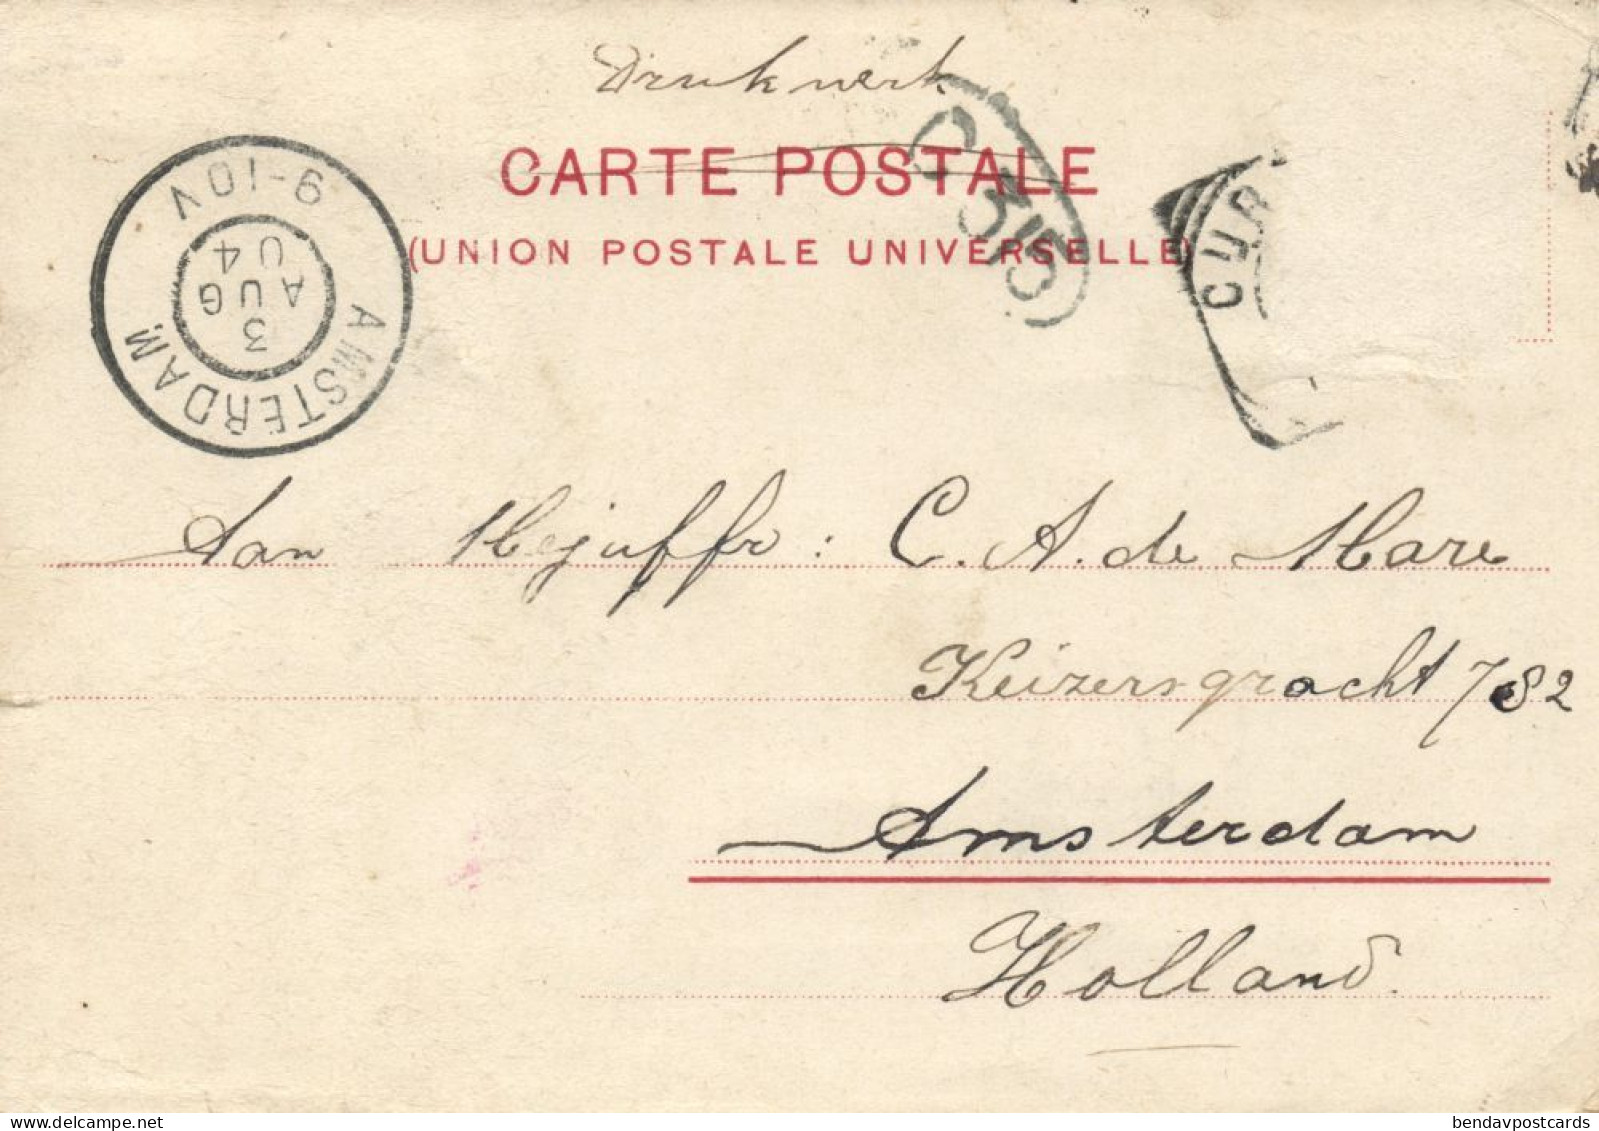 Drukwerk
CARTE POSTALE
(UNION POSTALE UNIVERSELLE)
C 35
CUR
AMSTERDAM
9-10V
3
AUG
04
Aan Mejuffr: C. A. de Mare
Keizersgracht 782
Amsterdam
Holland.
bendavpostcards